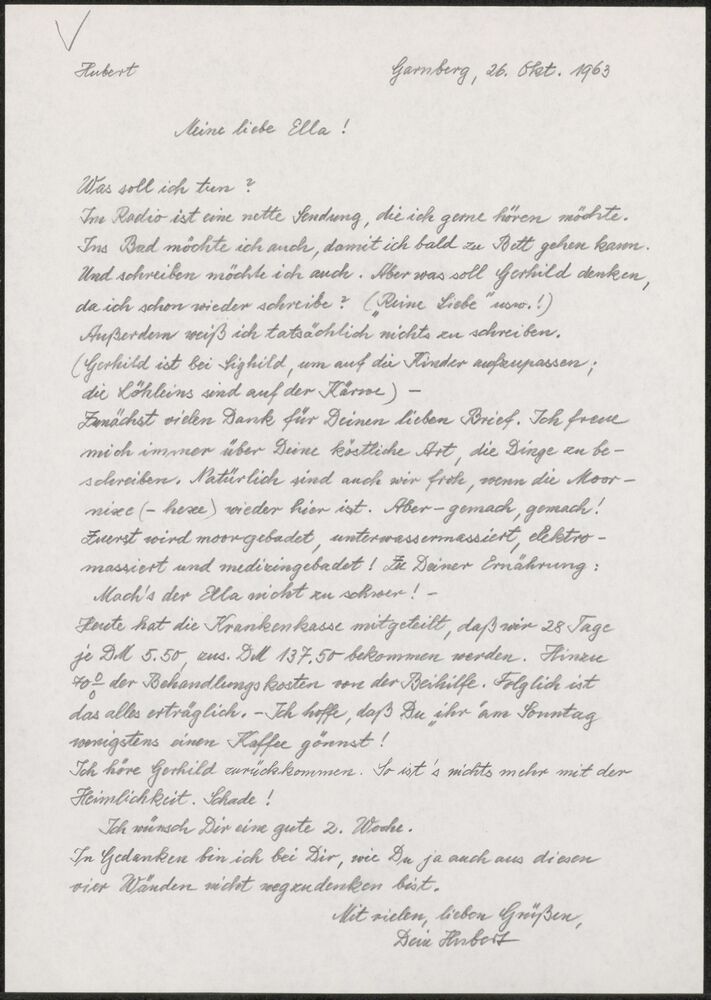 Hubert
Garnberg, 26. Okt. 1963
Meine liebe Ella !
Was soll ich tun ?
Im Radio ist eine nette Sendung, die ich gerne hören möchte.
Ins Bad möchte ich auch, damit ich bald zu Bett gehen kann.
Und schreiben möchte ich auch. Aber was soll Gerhild denken,
da ich schon wieder schreibe ? („Reine Liebe" usw.!)
Außerdem weiß ich tatsächlich nichts zu schreiben.
(Gerhild ist bei Sighild, um auf die Kinder aufzupassen ;
die Löhleins sind auf der Kärwe) –
Zunächst vielen Dank für Deinen lieben Brief. Ich freue
mich immer über Deine köstliche Art, die Dinge zu be–
schreiben. Natürlich sind auch wir froh, wenn die Moor–
nixe (– hexe) wieder hier ist. Aber – gemach, gemach !
Zuerst wird moorgebadet, unterwassermassiert, elektro–
massiert und medizingebadet ! Zu Deiner Ernährung :
Mach's der Ella nicht zu schwer ! –
Heute hat die Krankenkasse mitgeteilt, daß wir 28 Tage
je DM 5.50, zus. DM 137.50 bekommen werden. Hinzu
70% der Behandlungskosten von der Beihilfe. Folglich ist
das alles erträglich. – Ich hoffe, daß Du „ihr" am Sonntag
wenigstens einen Kaffee gönnst !
Ich höre Gerhild zurückkommen. So ist's nichts mehr mit der
Heimlichkeit. Schade !
Ich wünsch Dir eine gute 2. Woche.
In Gedanken bin ich bei Dir, wie Du ja auch aus diesen
vier Wänden nicht wegzudenken bist.
Mit vielen, lieben Grüßen,
Dein Hubert